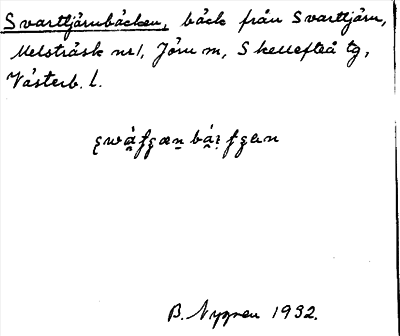 Svarttjärnbäcken, bäck från Svarttjärn,
Melsträsk nr 1, Jörn sn, Skellefteå tg,
Västerb. l.
B. Nygren 1932.